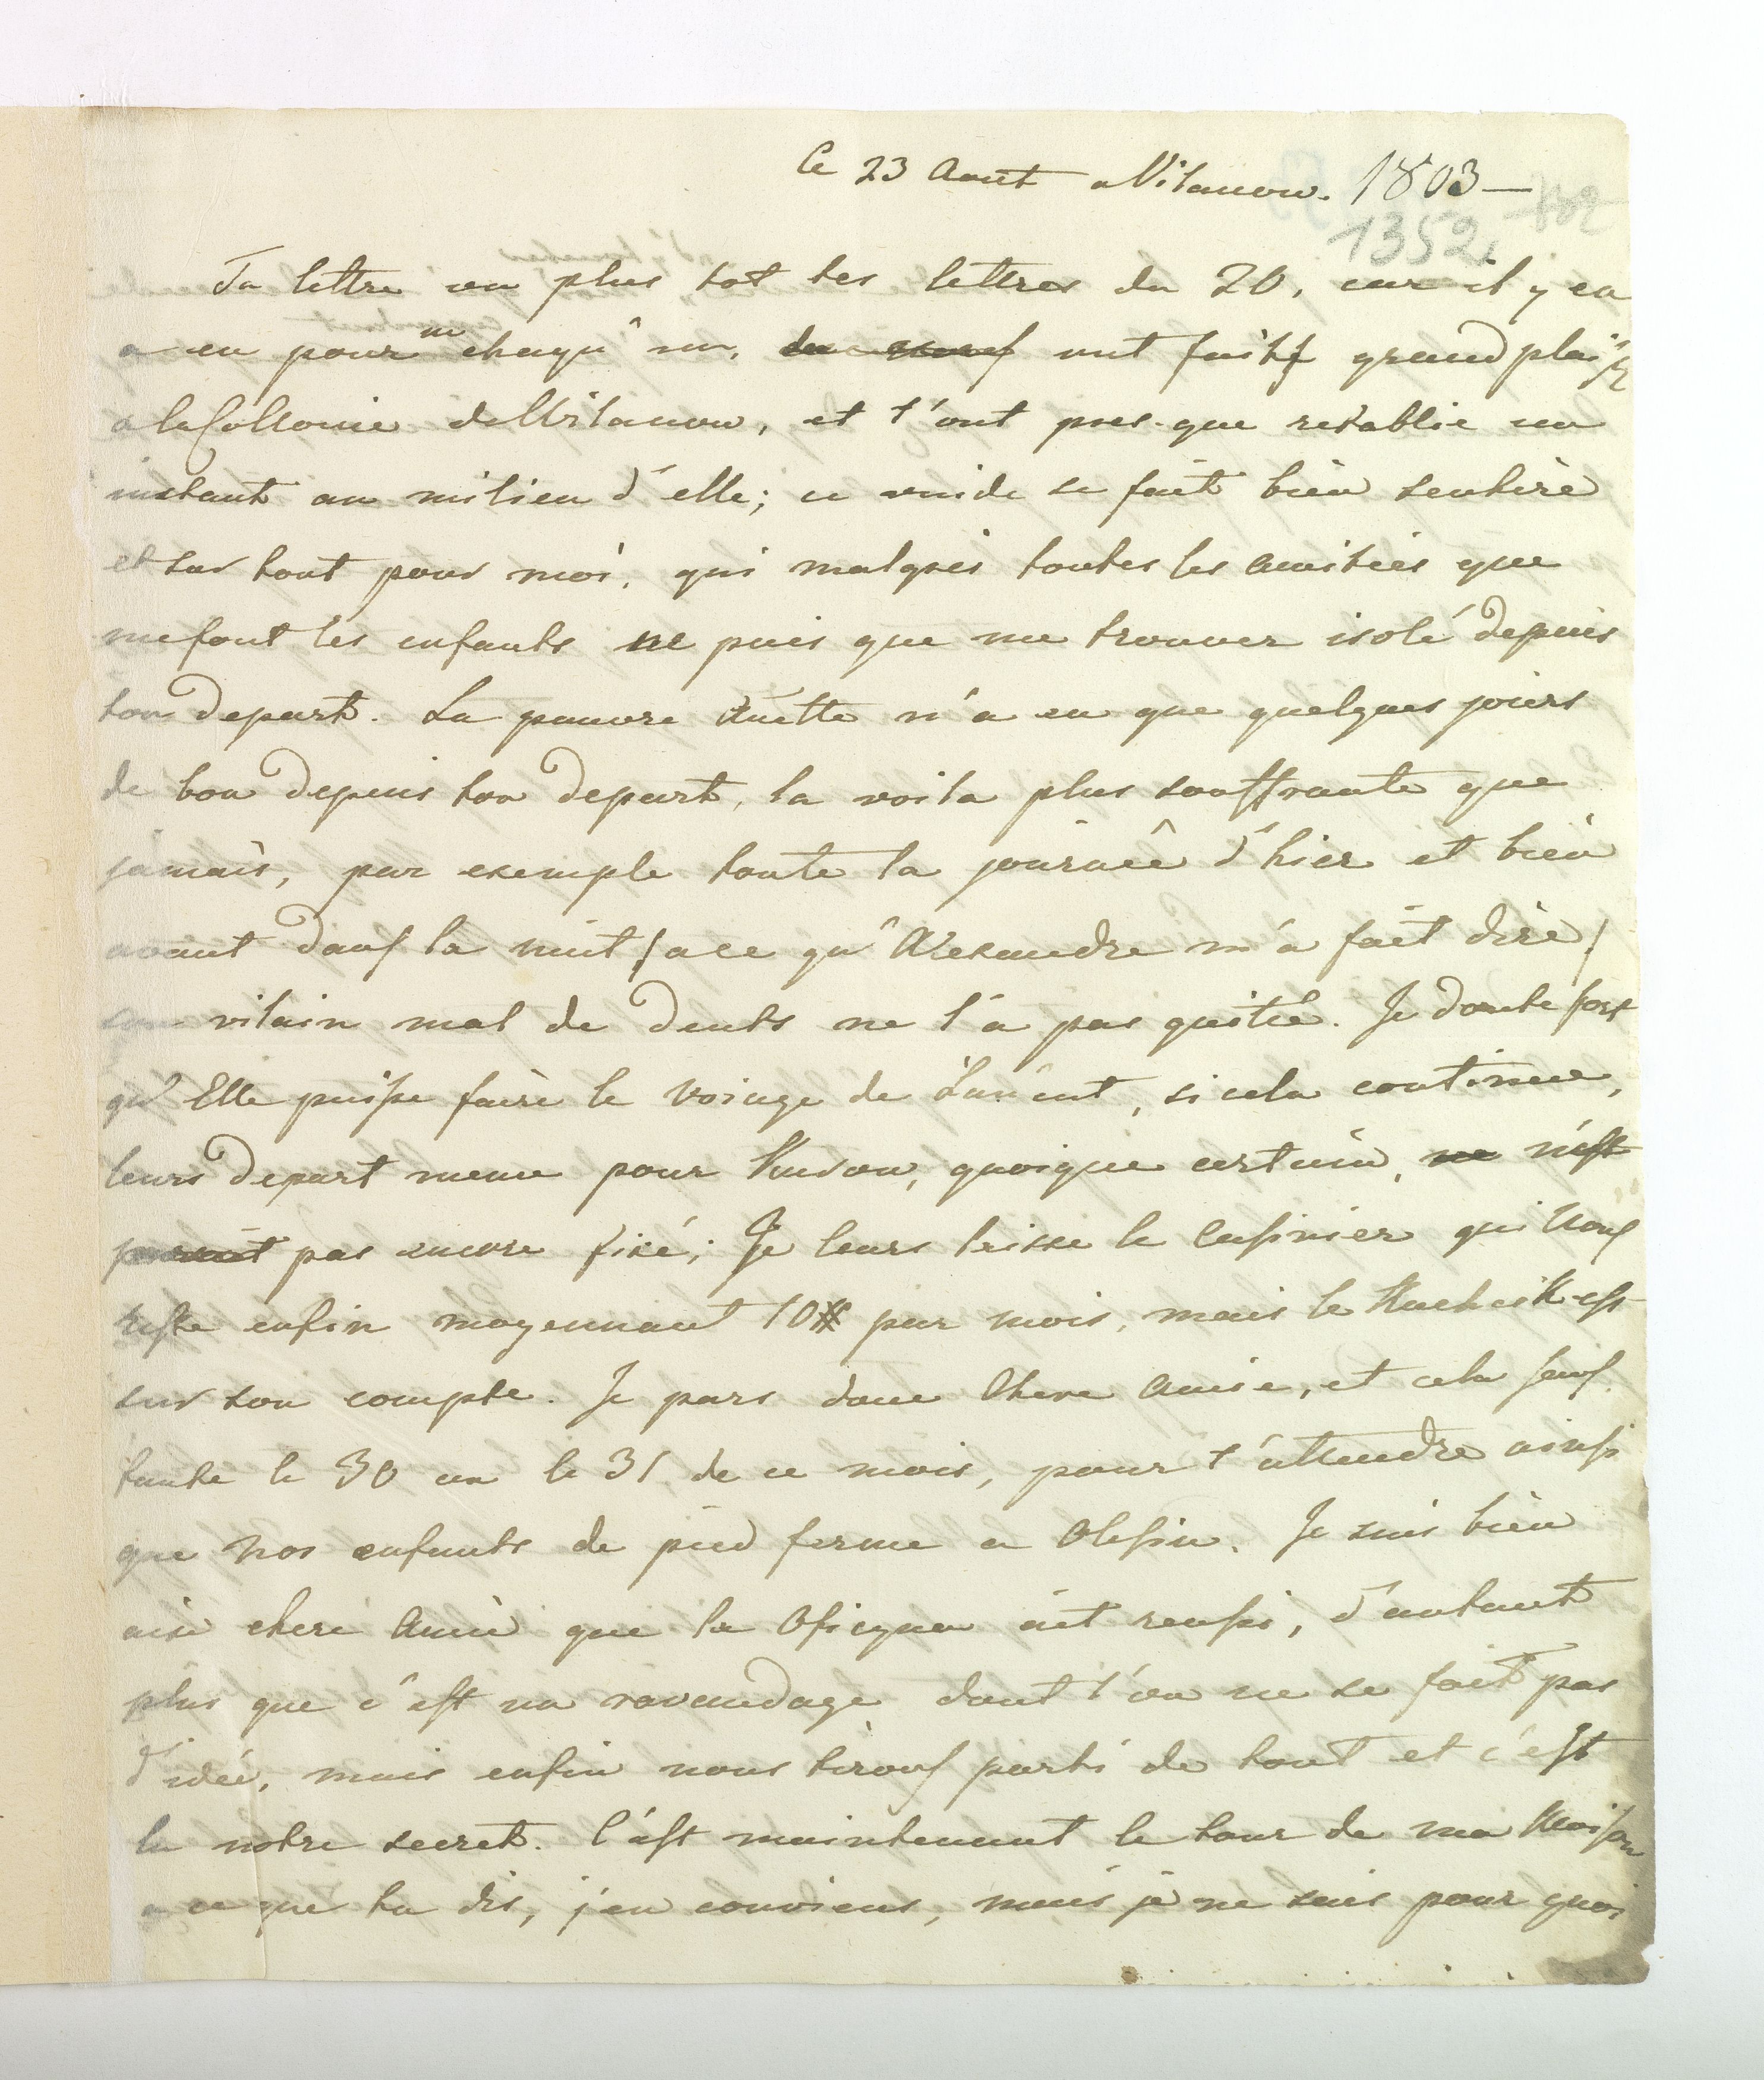 Ce 23 Aout a Vilanow. 1803 —
1352.
Ta lettre ou plus tot tes lettres du 20, car il y en
a eu pour un chaqu'un, ont fait grand plaisir
a la Collonie de Wilanow, et t'ont pres-que retablie un
instant au milieu d'elle; ce vuide se fait bien sentire
et sur tout pour moi, qui malgré toutes les amitiés que
me font les enfants ne puis que me trouver isolé depuis
ton depart. La pauvre Anette n'a eu que quelques jours
de bon depuis ton depart, la voila plus souffrante que
jamais, par exemple toute la journeê d'hier et bien
avant dans la nuit /a ce qu'Alexandre m'a fait dire/
son vilain mal de dents ne l'a pas quitté. Je doute fort
qu'Elle puisse faire le voiage de Lancut, si cela continue,
leurs depart meme pour Kurow, quoique certain, n'est
pas encore fixé; Je leurs laisse le Cusinier qui nous
reste enfin moyennant 10# par mois, mais le Kuchcik est
sur son compte. Je pars donc Chere Amie, et cela sans
faute le 30 ou le 31 de ce mois, pour t'attendre ainsi
que nos enfants de pied ferme a Olesin. Je suis bien
aise chere Amie que la Oficyna ait reussi, d'autant
plus que c'est un ravaudage dont l'on ne se fait pas
d'idée, mais enfin nous tirons parti de tout et c'est
la notre secret. C'est maintenant le tour de ma Maison
a ce que tu dis, j'en conviens, mais je ne sais pour quoi